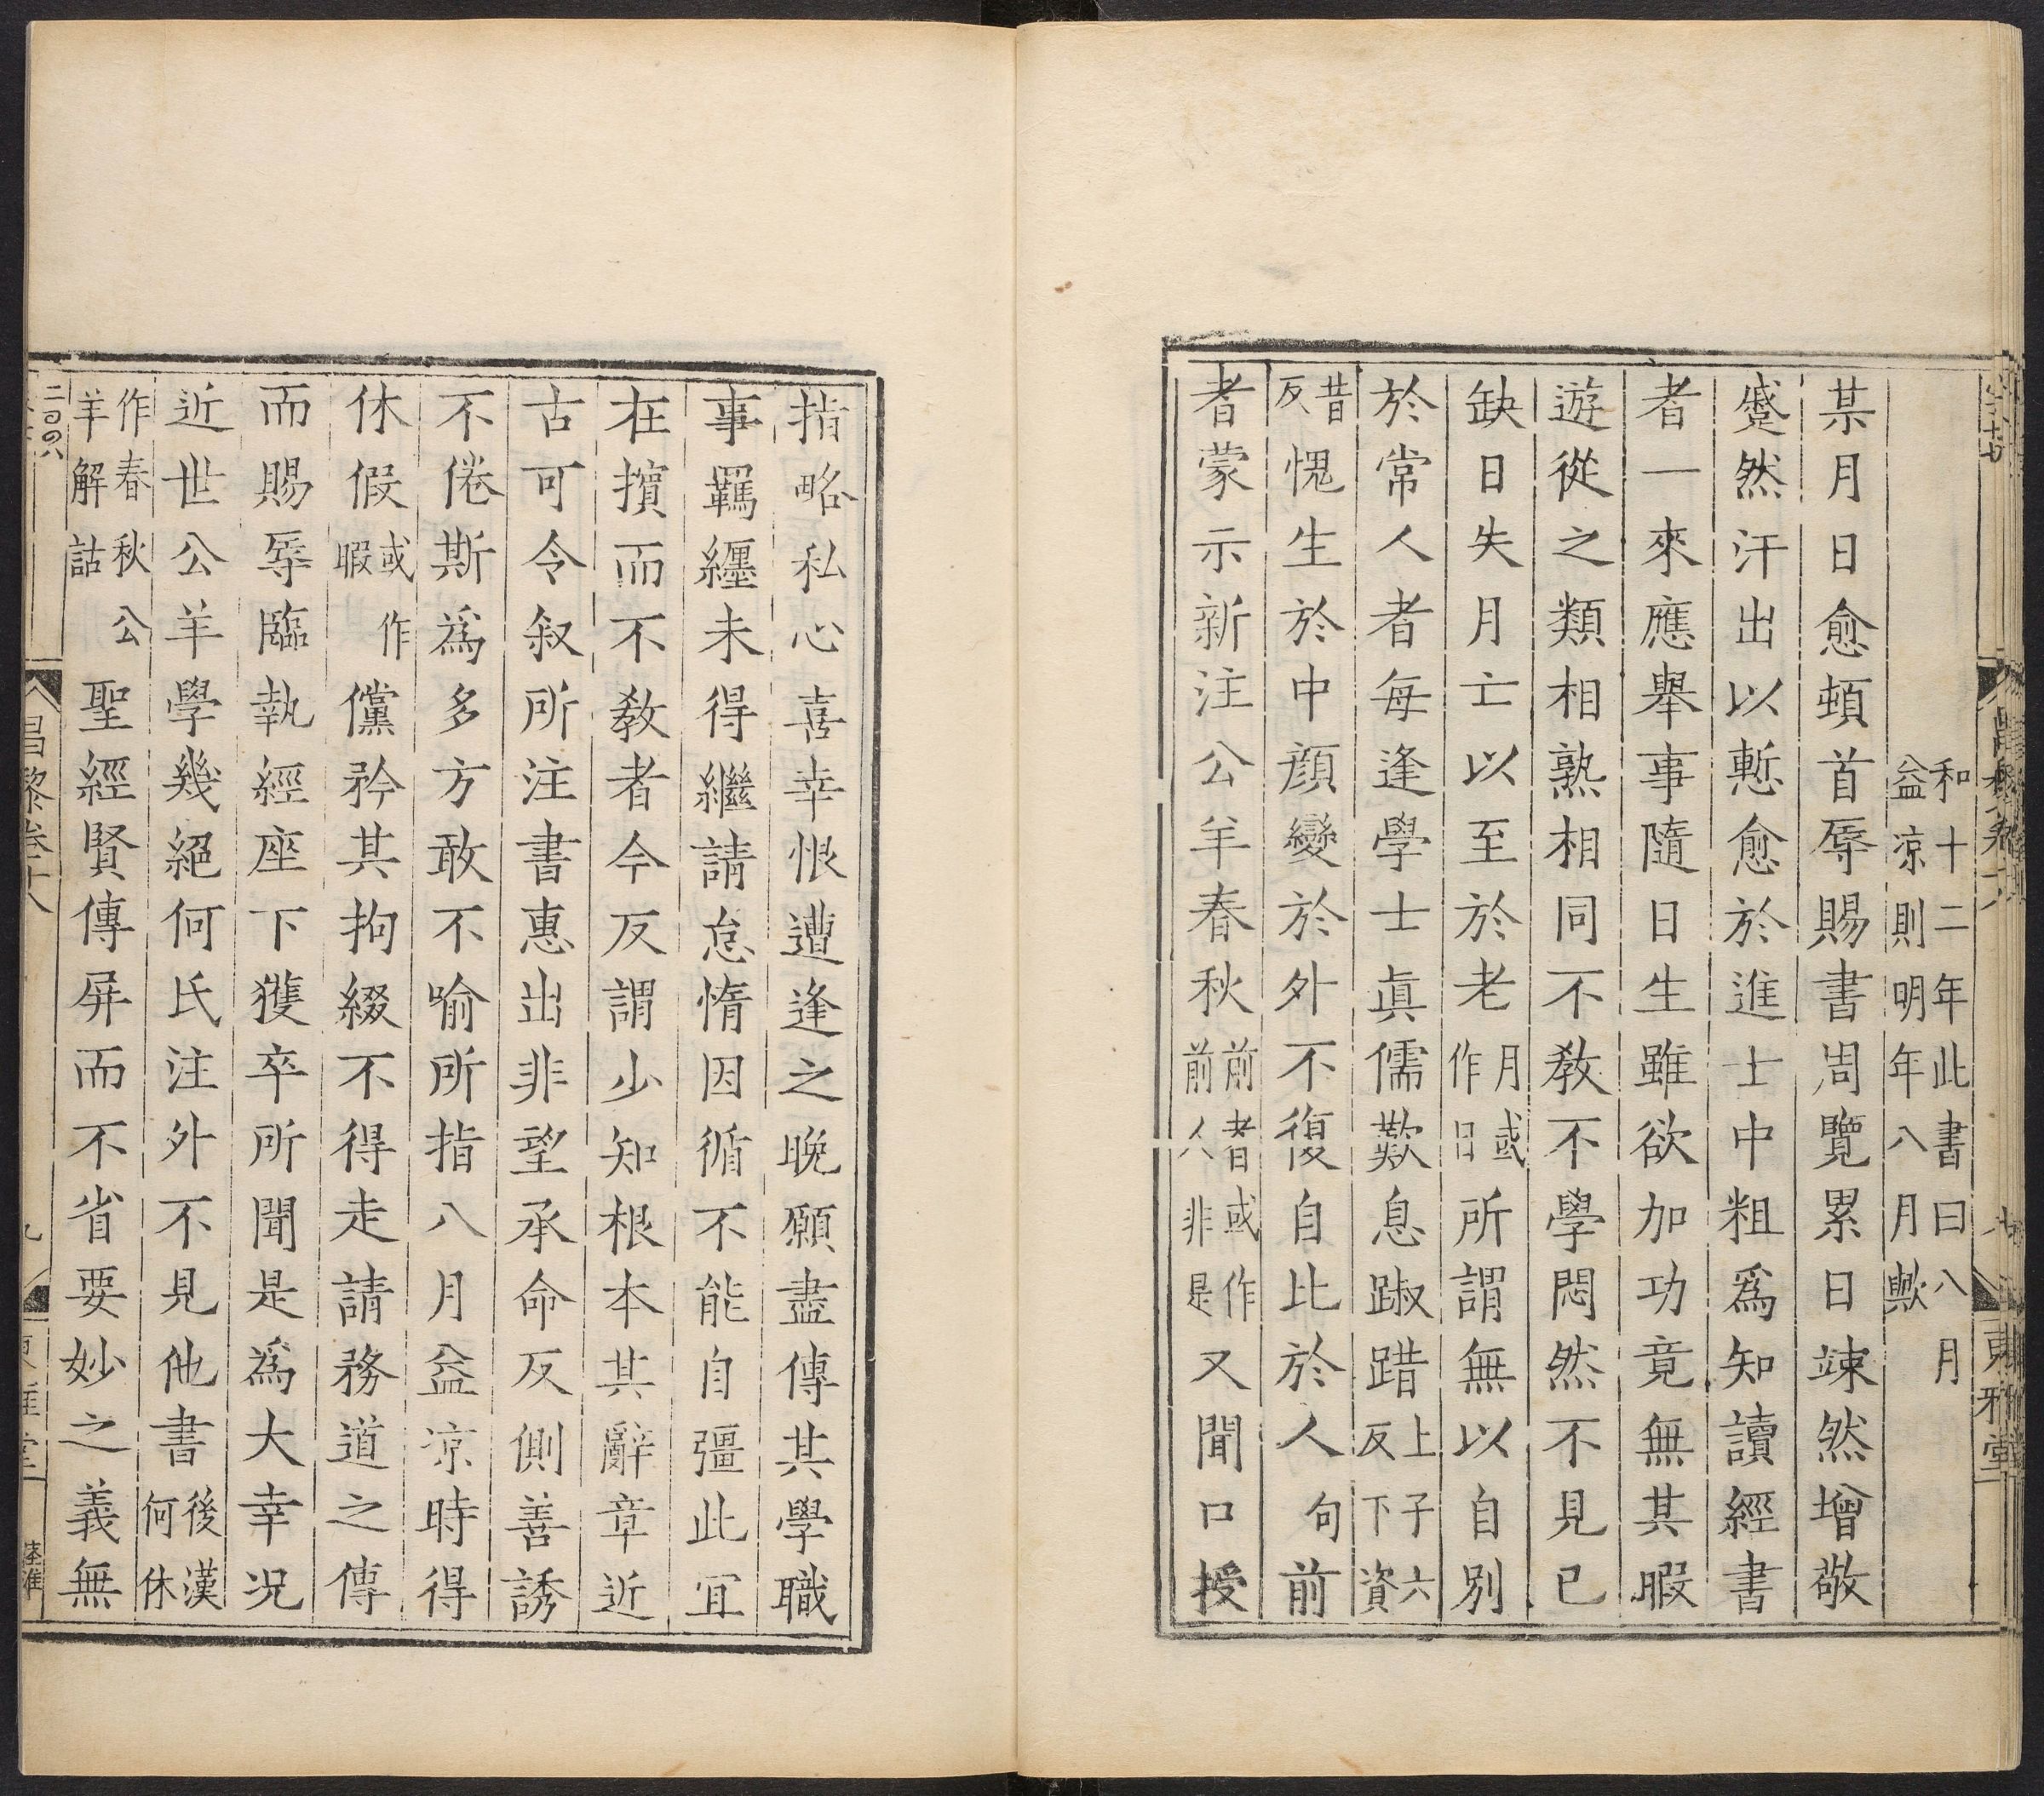 和十二年此書曰八月
益凉則明年八月歟
某月日愈頓首辱賜書周覽累日竦然增敬
蹙然汗出以慙愈於進士中粗爲知讀經書
者一來應舉事隨日生雖欲加功竟無其暇
遊從之類相熟相同不敎不學悶然不見已
缺日失月亡以至於老月或作日所謂無以自別
於常人者每逢學士眞儒歎息踧踖上子六反下資
昔反愧生於中顔變於外不復自比於人句前
者蒙示新注公羊春秋前者或作前人非是又聞口授
指略私心喜幸恨遭逢之晩願盡傳其學職
事羈纏未得繼請怠惰因循不能自彊此宜
在擯而不敎者今反謂少知根本其辭章近
古可令叙所注書惠出非望承命反側善誘
不倦斯爲多方敢不喻所指八月益凉時得
休假或作暇儻矜其拘綴不得走請務道之傳
而賜辱臨執經座下獲卒所聞是爲大幸况
近世公羊學幾絕何氏注外不見他書後漢何休
作春秋公羊解詁聖經賢傳屏而不省要妙之義無
昌黎卷十八
九
東雅堂